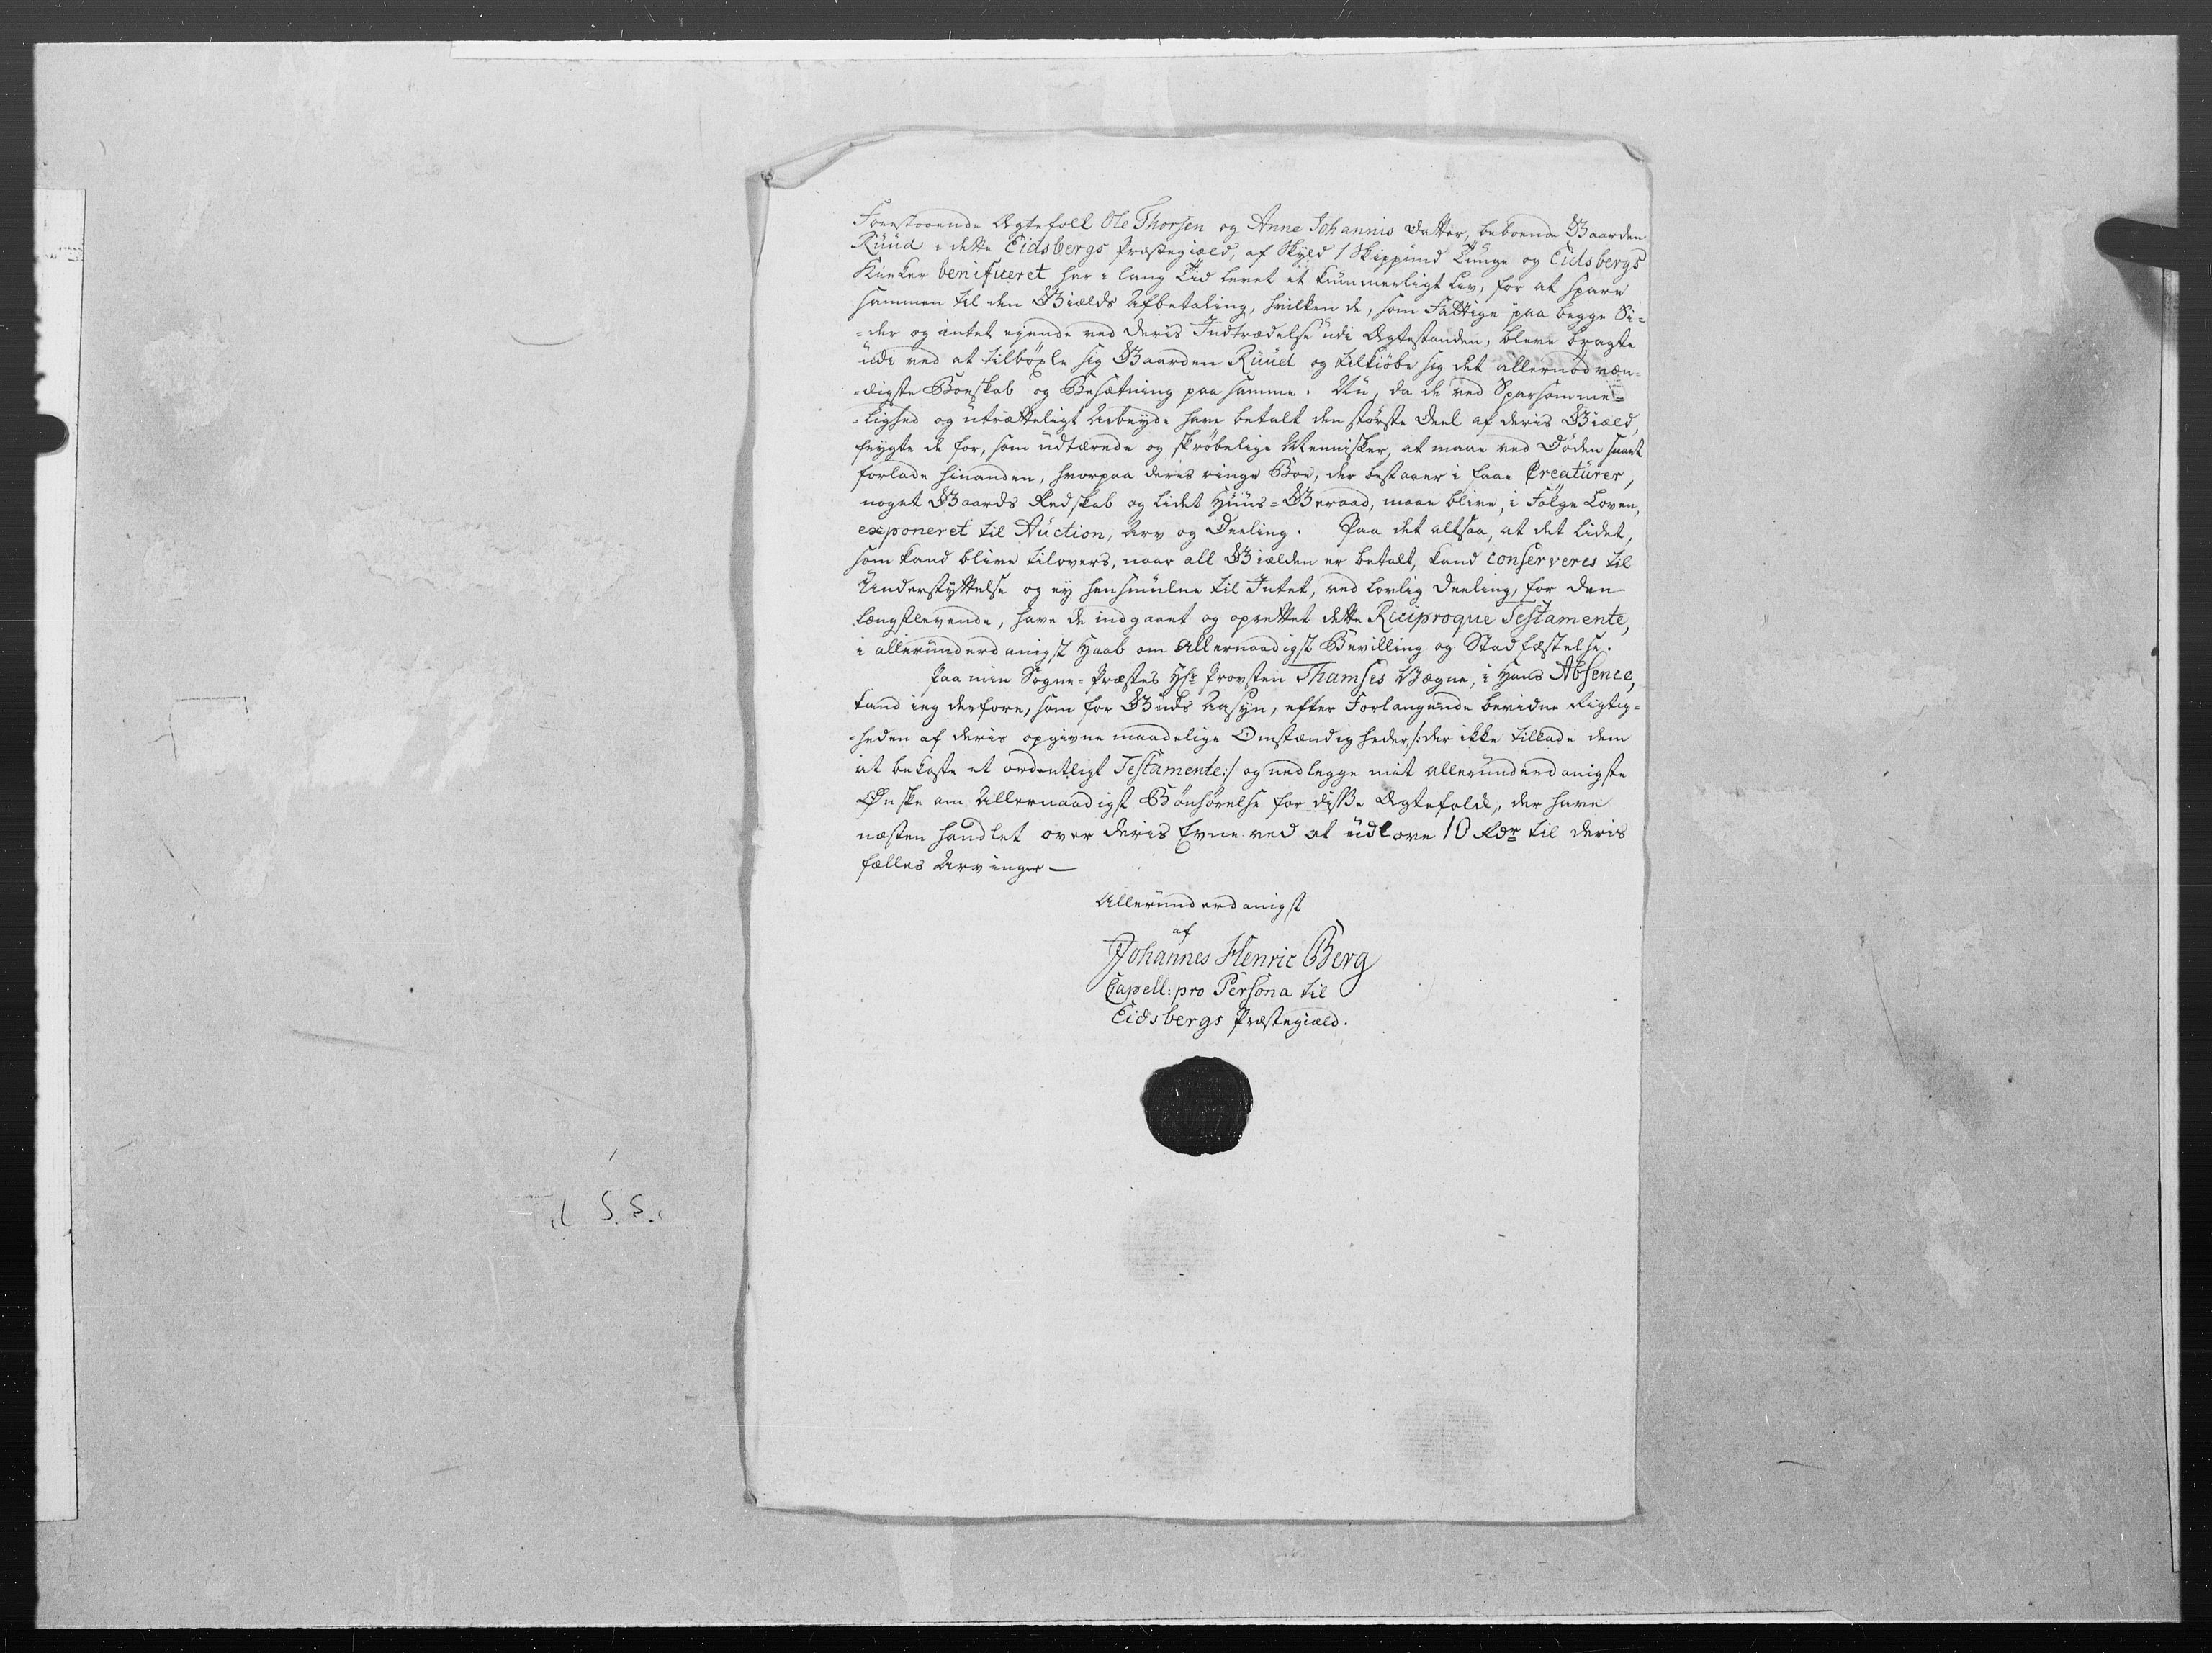 Forestaaende Ægtefolk Ole Thorsen og Anne Johannis Datter, beboende Gaarden
Ruud i dette Eidsbergs Præstegiæld, af Skyld 1 Skippund Tunge og Eidsbergs
Kirker benificeret har i lang Tid levet et kummerligt Liv, for at spare
sammen til den Giælds Afbetaling, hvilken de, som Fattige paa begge Si-
-der og intet eyende ved deris Indtrædelse udi Ægtestanden, bleve bragte
udi ved at tilböxle sig Gaarden Ruud og tilkiöbe sig det allernödvæn-
-digste Boeskab og Besætning paa samme. Nu, da de ved Sparsomme-
-lighed og utrætteligt Arbeyde have betalt den störste Deel af deris Giæld,
frygte de for, som udtærede og skröbelige Mennisker, at maae ved Döden snart
forlade hinanden, hvorpaa deris ringe Boe, der bestaaer i faae Creaturer,
noget Gaards Redskab og lidet Huus-Geraad, maae blive, i Fölge Loven,
exponeret til Auction, Arv og Deeling. Paa det altsaa, at det lidet,
som kand blive tilovers, naar all Giælden er betalt, kand conserveres til
Understyttelse og ej hensmulne til Intet, ved lovlig Deeling, for den
længstlevende, have de indgaaet og oprettet dette Reciproque Testamente,
i allerunderdanigst Haab om Allernaadigst Bevilling og Stadfæstelse.
Paa min Sogne-Præstes Hr. Provsten Thamses Vægne, i Hans Absence,
kand ieg derfore, som for Guds Aasyn, efter Forlangende bevidne Rigtig-
-heden af deris opgivne maadelige Omstændigheder, /: der ikke tillade dem
at bekoste et ordentligt Testamente :/ og nedlegge mit allerunderdanigste
Önske om Allernaadigst Bönhörelse for disse Ægtefolk, der have
næsten handlet over deris Evne ved at udlove 10 Rdr til deris
fælles Arvinger —
Allerunderdanigst
af
Johannes Henric Berg
Capell: pro Persona til
Eidsbergs Præstegiæld.